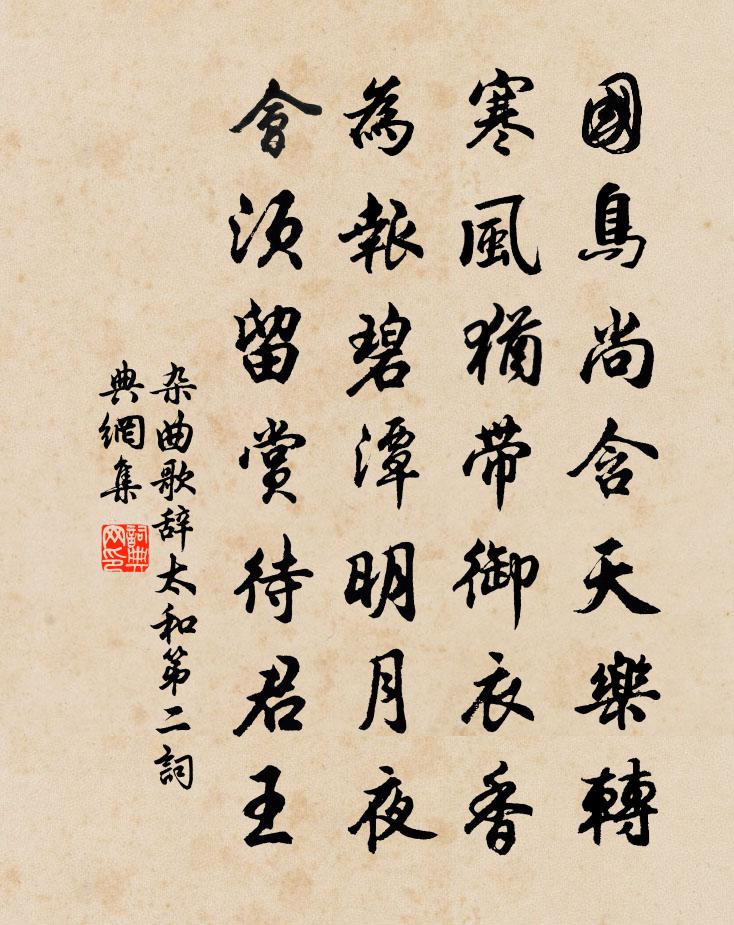 國鳥尚含天樂轉
寒風猶带御衣香
為報碧潭明月夜
會須留賞待君王
杂曲歌辞太和第二詞
典網集
詞典
网印